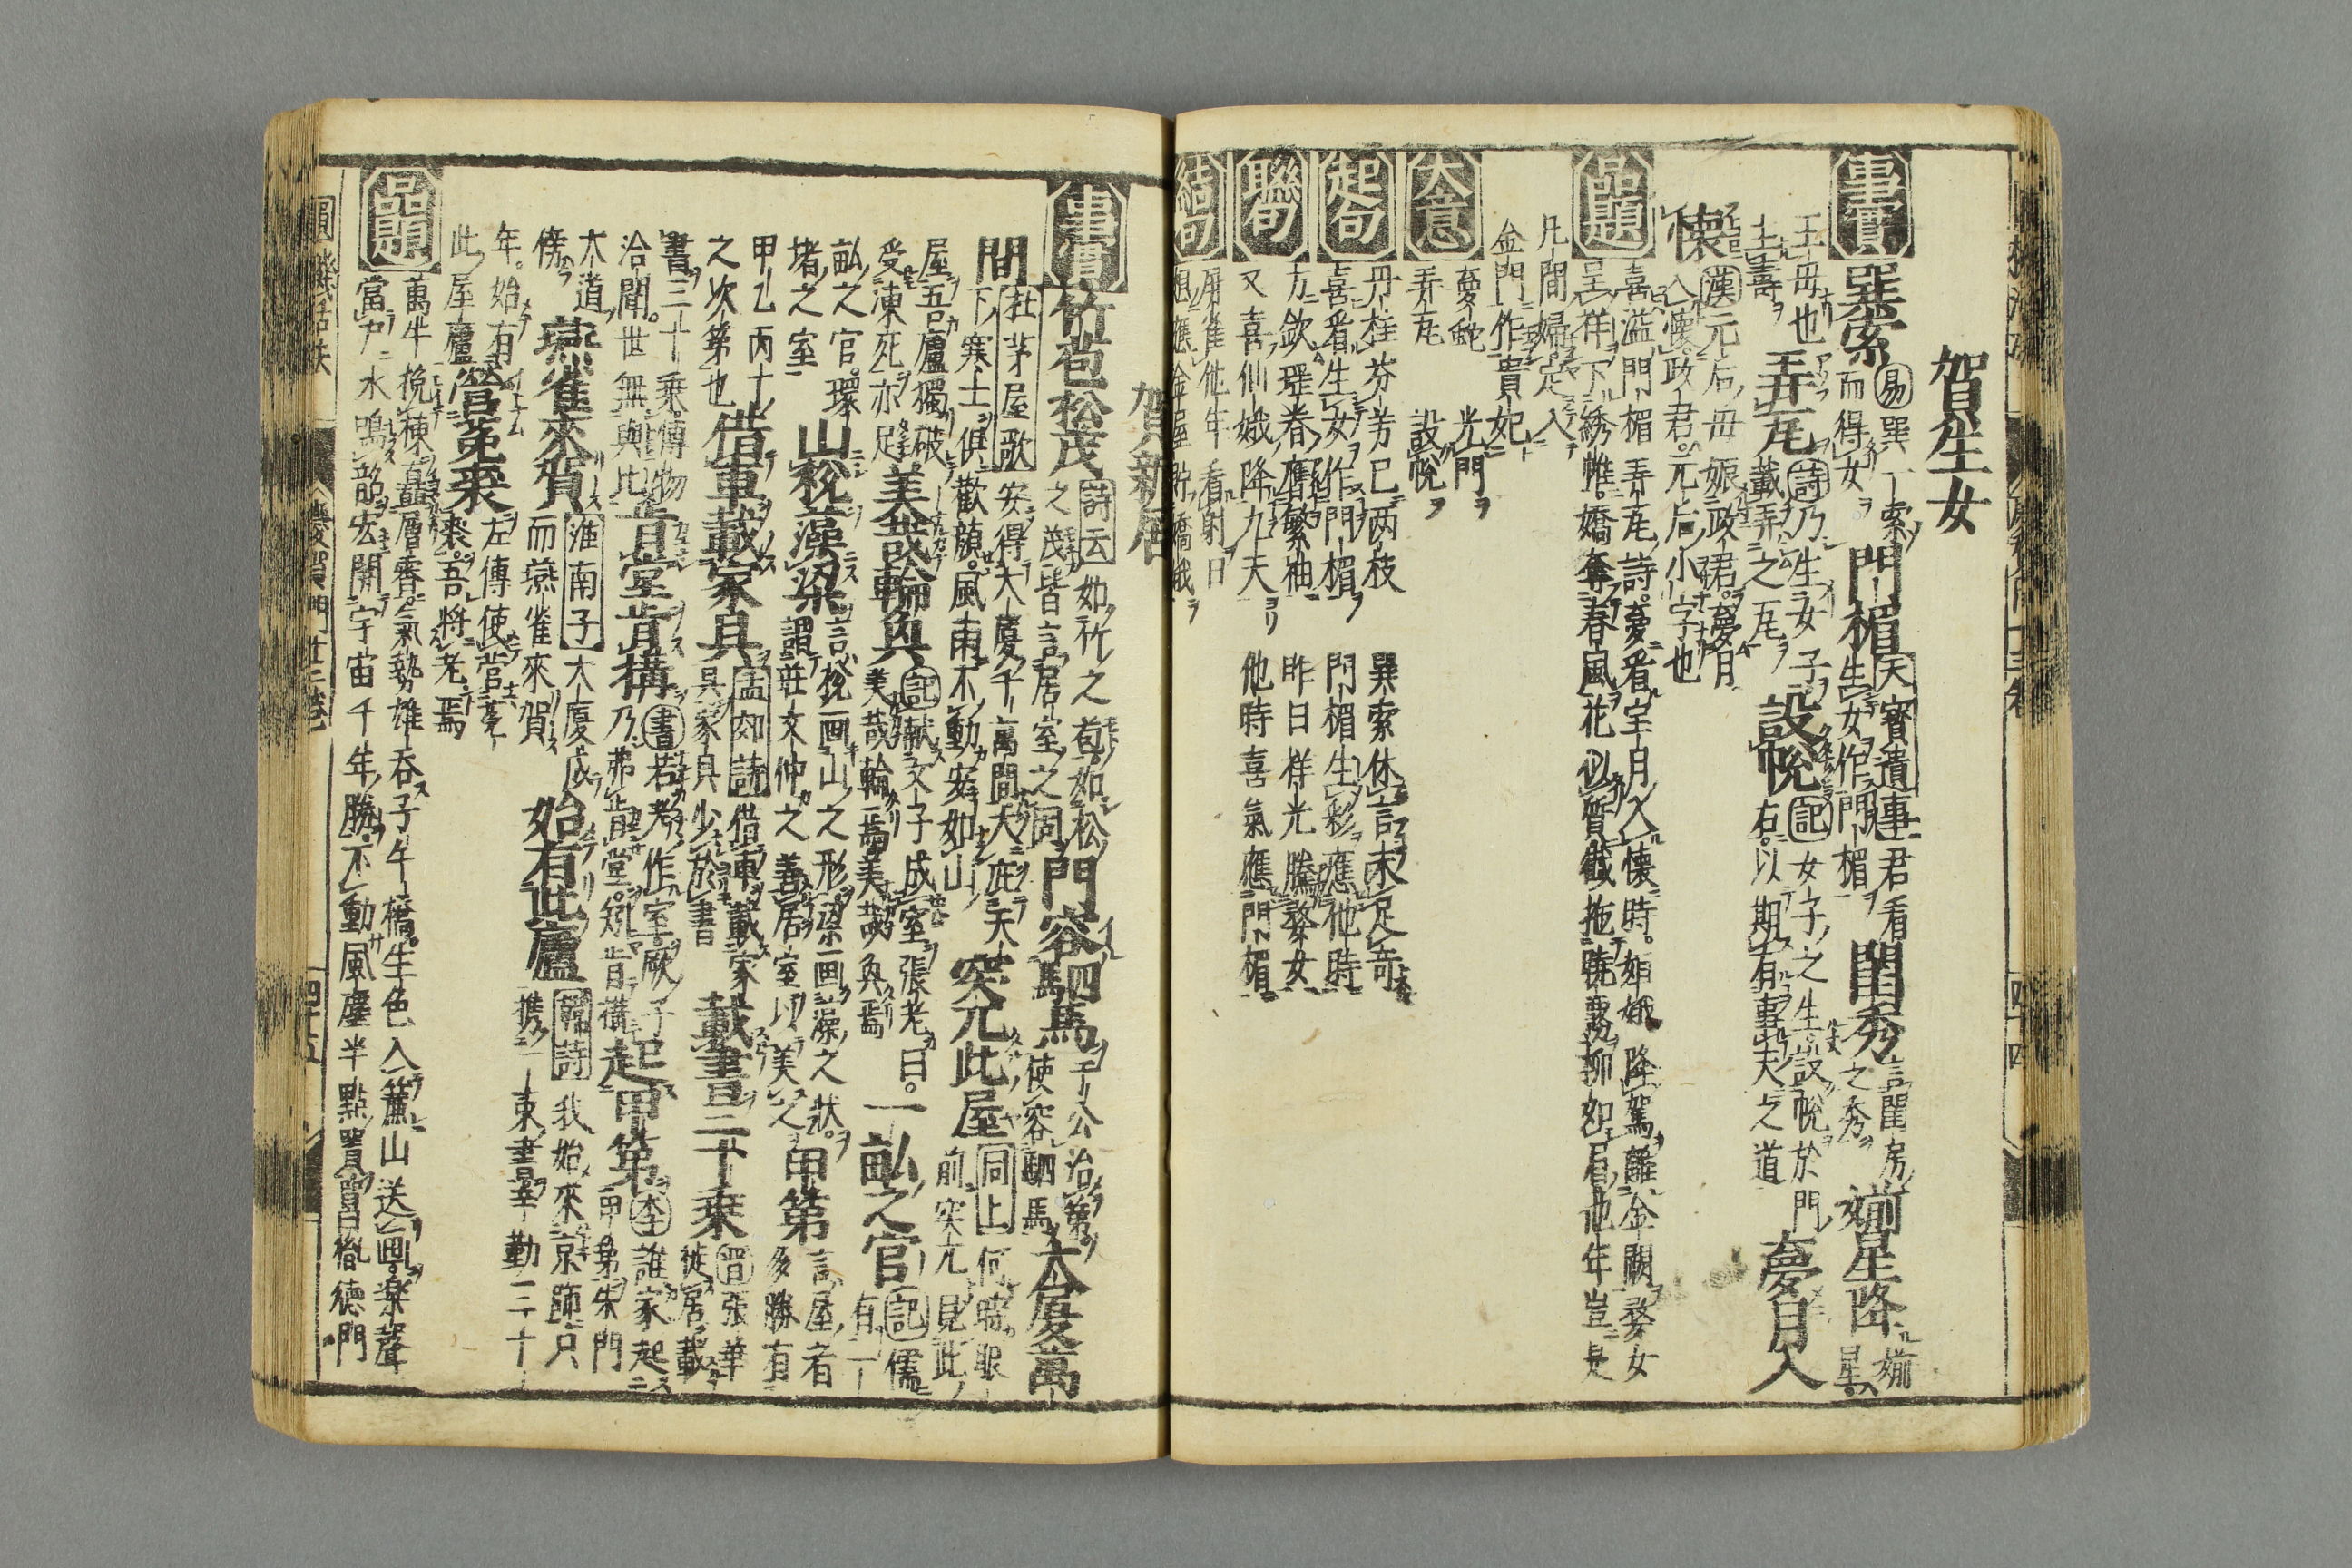 賀生女
事實 巽索 易巽一索而得女 門楣 天寶遺事君看生女作門楣 閨秀 言閨房之秀 婺星降 婺星
王母也 弄瓦 詩乃生女子載弄之瓦 設帨 記女子之生設帨於門右 以期有事夫之道 夢月入
懷 漢元后母娠政君夢月入懷政君元后小字也
品題 喜溢門楣弄瓦詩 夢看宝月入懷時 姮娥降駕離金闕 婺女
呈祥下綉帷 嬌奪春風花似質 戲拖曉霧柳如眉 他年豈是
凡間婦 定入
金門作貴妃 光門
大意 夢蛇 弄瓦 設帨
起句 丹桂芬芳已兩枝 巽索休言未足奇
喜看生女作門楣 門楣生彩應他時
聯句 方欽瑶眷膺繁祉 昨日祥光騰婺女
又喜仙娥降九天 他時喜氣應門楣
結句 屏雀他年看射日
想應金屋貯嬌娥
賀新居
事實 竹苞松茂 詩云如竹之苞如松之茂皆言居室之同 門容駟馬 于公治第使容駟馬 大廈萬
間 杜茅屋歌安得大廈千萬間大庇天下寒士俱歡顔風雨不動安如山 突兀此屋 同上何時眼前突兀見此
屋吾廬獨破受凍死亦足 美哉輪奐 記献文子成室張老曰美哉輪焉美哉奐焉 一畝之官 記儒有一
畝之官環堵之室 山梲藻梁 言梲画山之形梁画藻之狀謂莊文仲之善居室以美之 甲第 言屋者多勝有
甲乙丙十之次第也 借車載家具 孟郊詩借車載家具家具少於書 載書三十乘 晋張華徙居載
書三十乘博物洽聞世無與比 肯堂肯構 書若考作室厥子乃弗肯堂矧肯構 起甲第 李誰家起甲第朱門
大道傍 燕雀來賀 淮南子大廈成而燕雀來賀 始有此廬 韓詩我始來京師只携一束書辛勤三十
年始有此屋廬 營菟裘 左傳使營菟裘吾將老焉
品題 萬牛挽棟矗層霄 氣勢雄吞子午橋 生色入簾山送画 楽聲
當戸水鳴韶 宏開宇宙千年勝 不動風塵半點囂 胄胤德門
圓機活法 慶賀門廿三巻 四十五
四十四